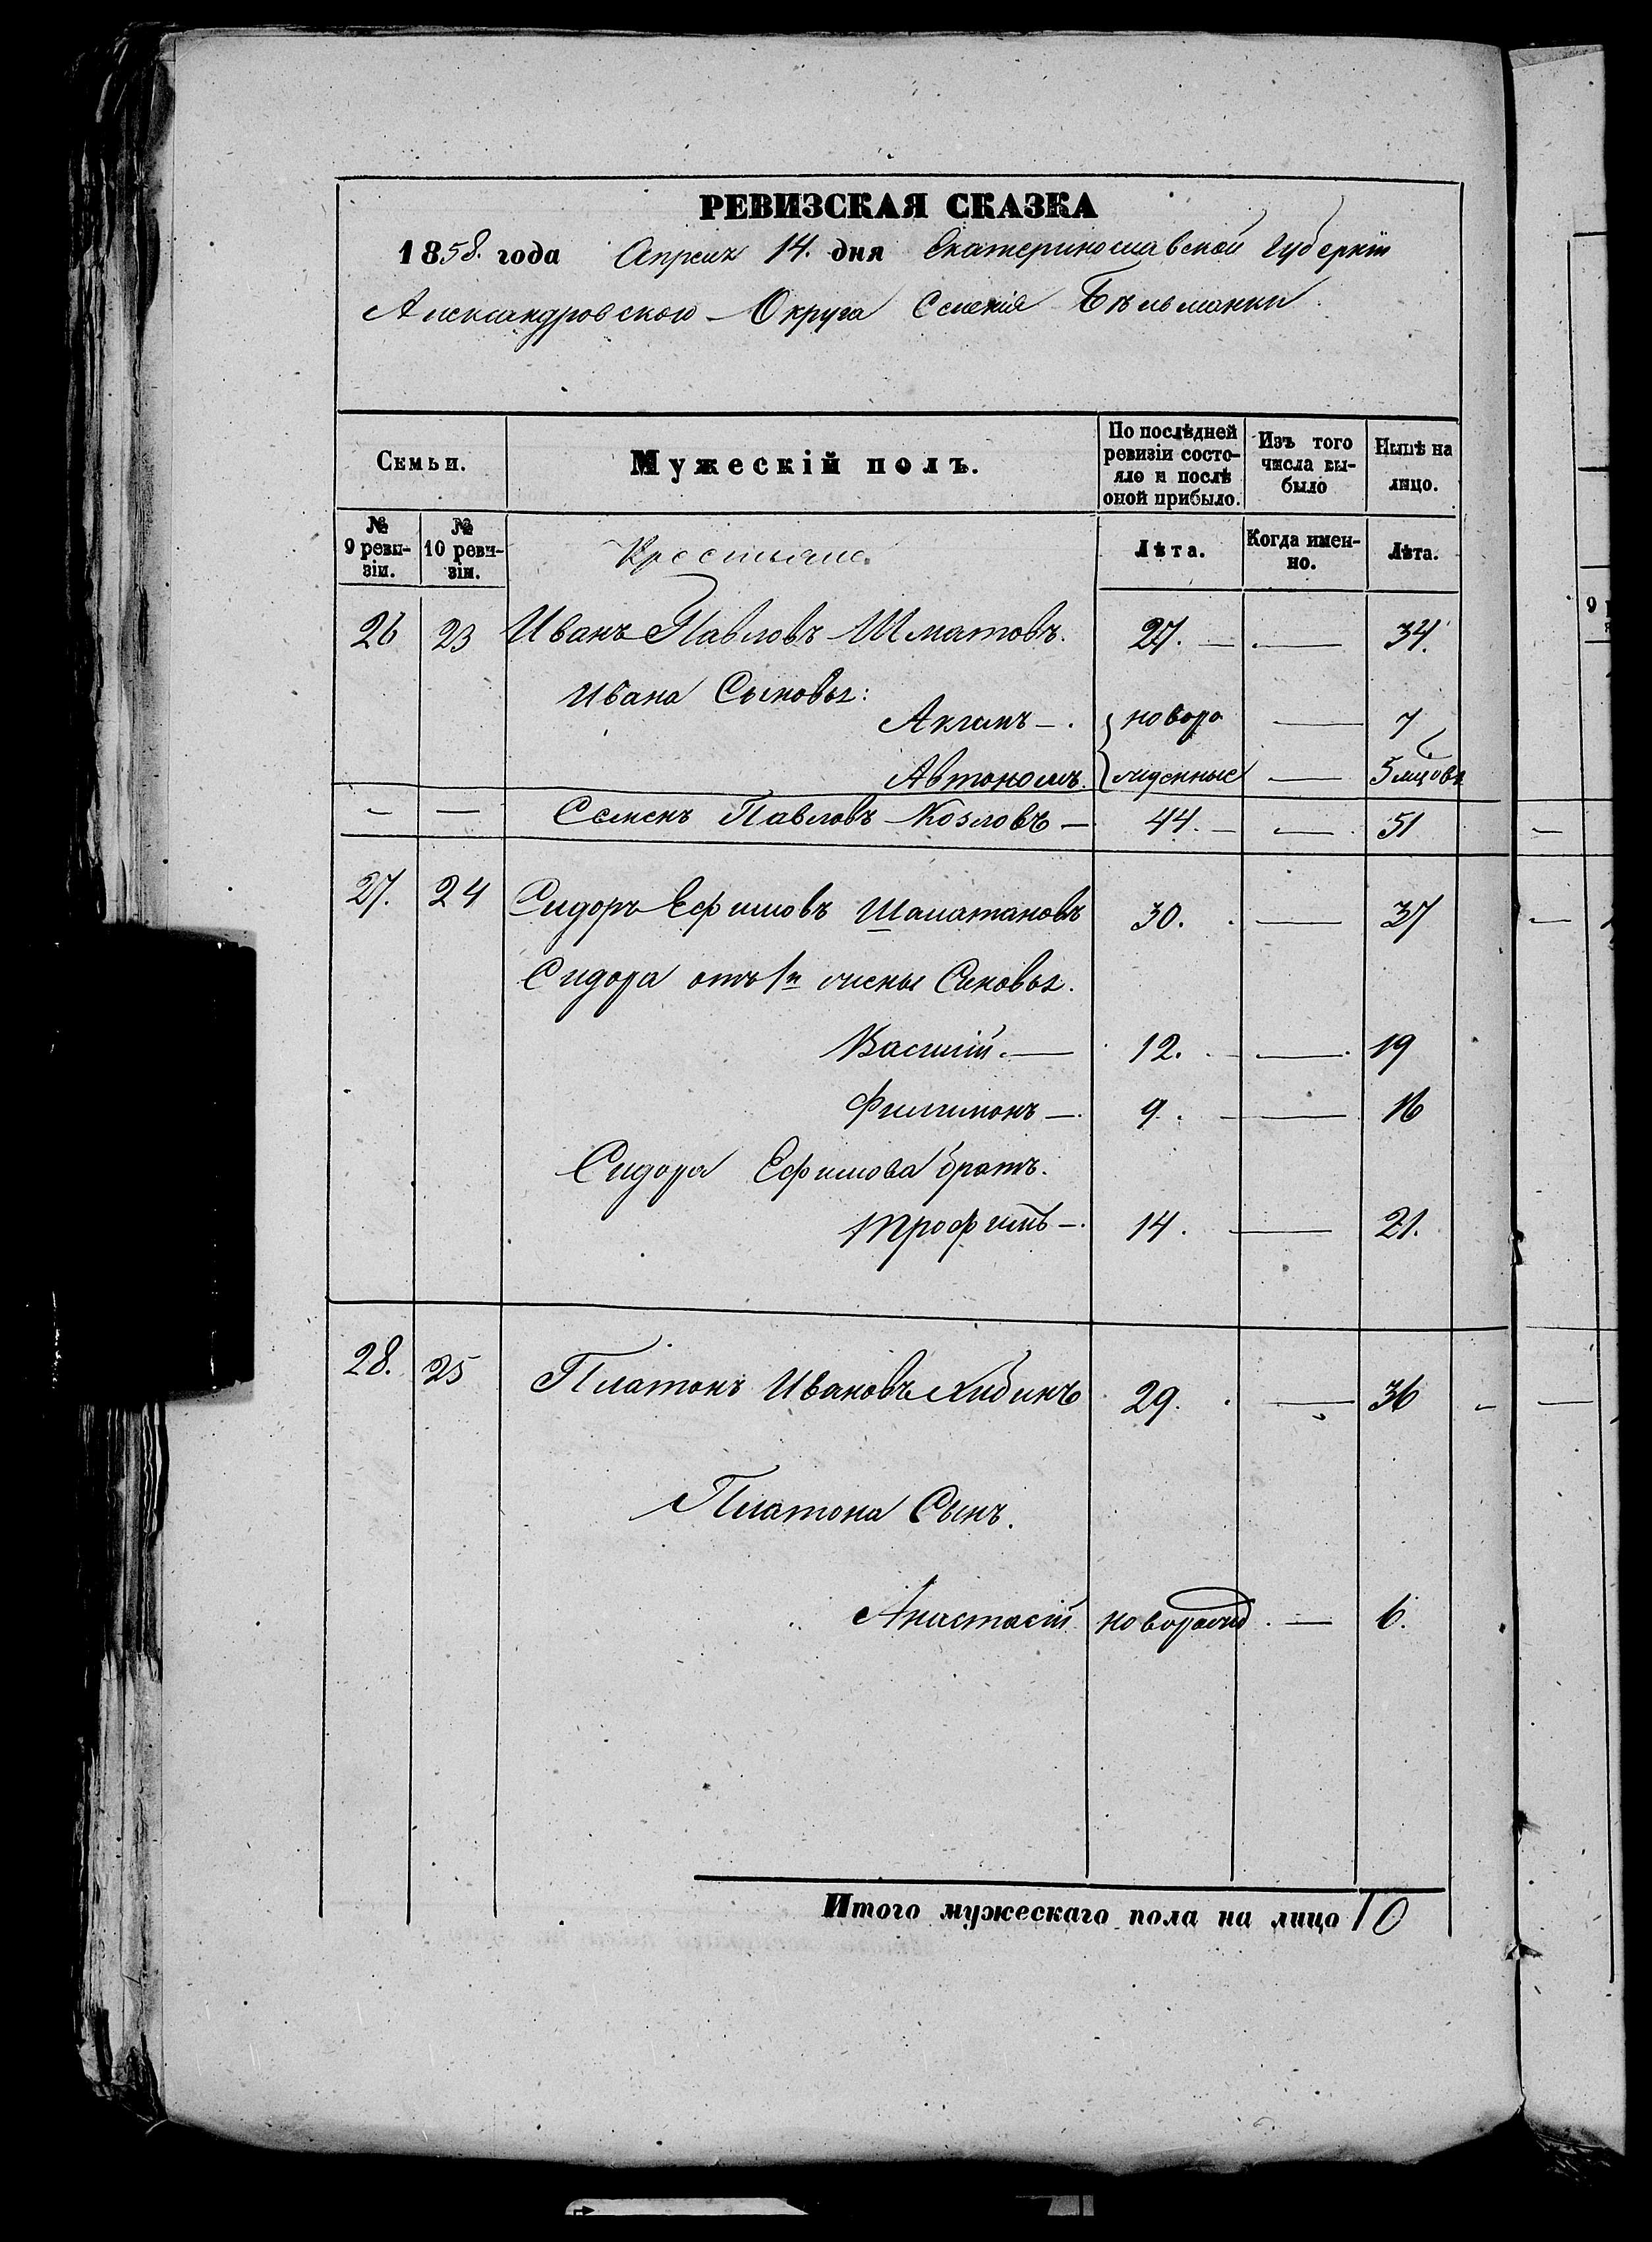 РЕВИЗСКАЯ СКАЗКА
1858. года Апреля 14. дня Екатеринославской Губерніи
Александровскаго Округа Селенія Бѣльманки
Семьи. Мужескій полъ. По послѣдней ревизіи состояло и послѣ оной прибыло. Изъ того числа выбыло Нынѣ на лицо.
№ 9 ревизіи. № 10 ревизіи. Крестьяне. Лѣта. Когда именно. Лѣта.
26 23 Иванъ Павловъ Шматовъ. 27. — — 34.
Ивана Сыновья:
Акимъ — . новоро — 7
Автономъ. жденные — 5 мцовъ
— — Семенъ Павловъ Козловъ — 44. — — 51
27. 24 Сидоръ Ефимовъ Шаматановъ 30. — 37
Сидора отъ 1й жены Сыновья.
Василій. — 12. — 19
Филимонъ — . 9. — 16
Сидора Ефимова братъ.
Трофимъ — . 14. — 21.
28. 25 Платонъ Ивановъ 29. — 36
Платона Сынъ.
Анастасій новорожд — 6.
Итого мужескаго пола на лицо 10